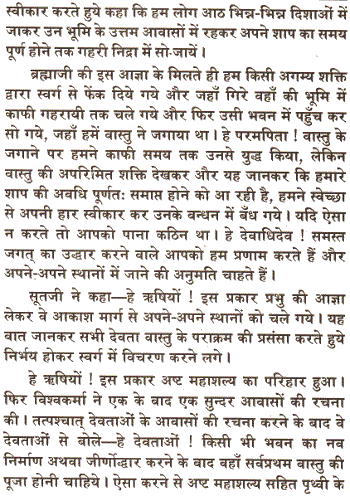 स्वीकार करते हुये कहा कि हम लोग आठ भिन्न-भिन्न दिशाओं में
जाकर उन भूमि के उत्तम आवासों में रहकर अपने शाप का समय
पूर्ण होने तक गहरी निद्रा में सो-जायें।
ब्रह्माजी की इस आज्ञा के मिलते ही हम किसी अगम्य शक्ति
द्वारा स्वर्ग से फेंक दिये गये और जहाँ गिरे वहाँ की भूमि में
काफी गहरायी तक चले गये और फिर उसी भवन में पहुँच कर
सो गये, जहाँ हमें वास्तु ने जगाया था। हे परमपिता! वास्तु के
जगाने पर हमने काफी समय तक उनसे युद्ध किया, लेकिन
वास्तु की अपरिमित शक्ति देखकर और यह जानकर कि हमारे
शाप की अवधि पूर्णतः समाप्त होने को आ रही है, हमने स्वेच्छा
से अपनी हार स्वीकार कर उनके बन्धन में बँध गये। यदि ऐसा
न करते तो आपको पाना कठिन था। हे देवाधिदेव! समस्त
जगत् का उद्धार करने वाले आपको हम प्रणाम करते हैं और
अपने-अपने स्थानों में जाने की अनुमति चाहते हैं।
सूतजी ने कहा—हे ऋषियों! इस प्रकार प्रभु की आज्ञा
लेकर वे आकाश मार्ग से अपने-अपने स्थानों को चले गये। यह
बात जानकर सभी देवता वास्तु के पराक्रम की प्रसंसा करते हुये
निर्भय होकर स्वर्ग में विचरण करने लगे।
हे ऋषियों! इस प्रकार अष्ट महाशल्य का परिहार हुआ।
फिर विश्वकर्मा ने एक के बाद एक सुन्दर आवासों की रचना
की। तत्पश्चात् देवताओं के आवासों की रचना करने के बाद वे
देवताओं से बोले—हे देवताओं! किसी भी भवन का नव
निर्माण अथवा जीर्णोद्धार करने के बाद वहाँ सर्वप्रथम वास्तु की
पूजा होनी चाहिये। ऐसा करने से अष्ट महाशल्य सहित पृथ्वी के